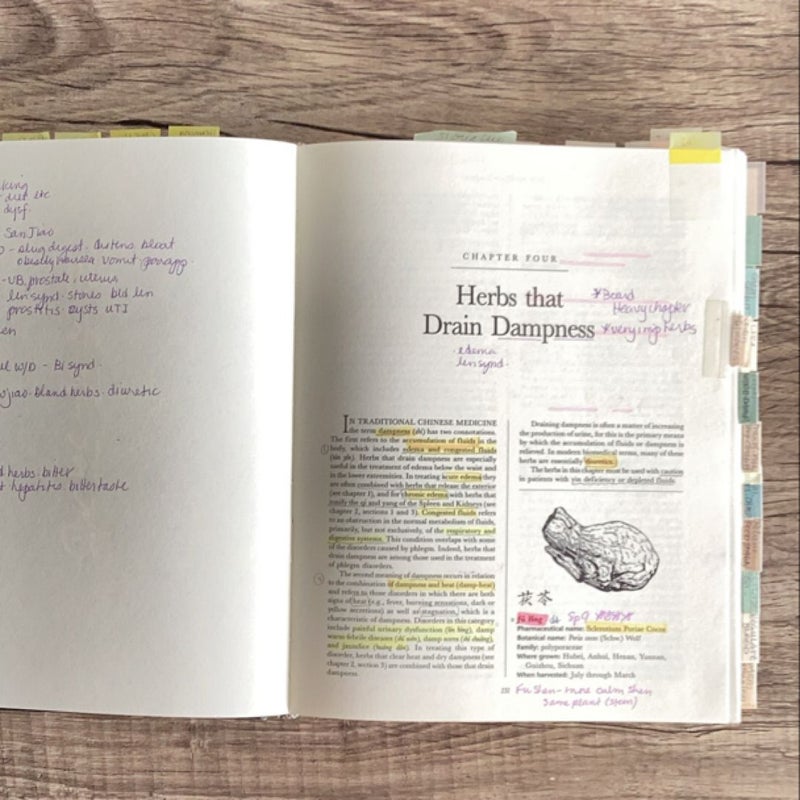 diet etc
dysf.
San Jiao
slug digest.
obesity nausea vomit
UB, prostate, uterus
len synd. stones bld len
prostitis cysts UTI
W/D - Bi synd.
bland herbs. diuretic
herbs. bitter
hepatitis. bitter taste
CHAPTER FOUR
Herbs that
Drain Dampness
*Board
Heavy chapter
*very imp herbs
edema
len synd.
IN TRADITIONAL CHINESE MEDICINE
the term dampness (shī) has two connotations.
The first refers to the accumulation of fluids in the
body, which includes edema and congested fluids
(tán yǐn). Herbs that drain dampness are especially
useful in the treatment of edema below the waist and
in the lower extremities. In treating acute edema they
are often combined with herbs that release the exterior
(see chapter 1), and for chronic edema with herbs that
tonify the qi and yang of the Spleen and Kidneys (see
chapter 2, sections 1 and 3). Congested fluids refers
to an obstruction in the normal metabolism of fluids,
primarily, but not exclusively, of the respiratory and
digestive systems. This condition overlaps with some
of the disorders caused by phlegm. Indeed, herbs that
drain dampness are among those used in the treatment
of phlegm disorders.
The second meaning of dampness occurs in relation
to the combination of dampness and heat (damp-heat)
and refers to those disorders in which there are both
signs of heat (e.g., fever, burning sensations, dark or
yellow secretions) as well as stagnation, which is a
characteristic of dampness. Disorders in this category
include painful urinary dysfunction (lín bìng), damp
warm febrile diseases (shī wēn), damp sores (shī chuāng),
and jaundice (huáng dǎn). In treating this type of
disorder, herbs that clear heat and dry dampness (see
chapter 2, section 3) are combined with those that drain
dampness.
Draining dampness is often a matter of increasing
the production of urine, for this is the primary means
by which the accumulation of fluids or dampness is
relieved. In modern biomedical terms, many of these
herbs are essentially diuretics.
The herbs in this chapter must be used with caution
in patients with yin deficiency or depleted fluids.
茯苓
fú líng
Sp 9
Pharmaceutical name: Sclerotium Poriae Cocos
Botanical name: Poria cocos (Schw.) Wolf
Family: polyporaceae
Where grown: Hubei, Anhui, Henan, Yunnan,
Guizhou, Sichuan
When harvested: July through March
Fu Shen - more calm Shen
same plant (stem)